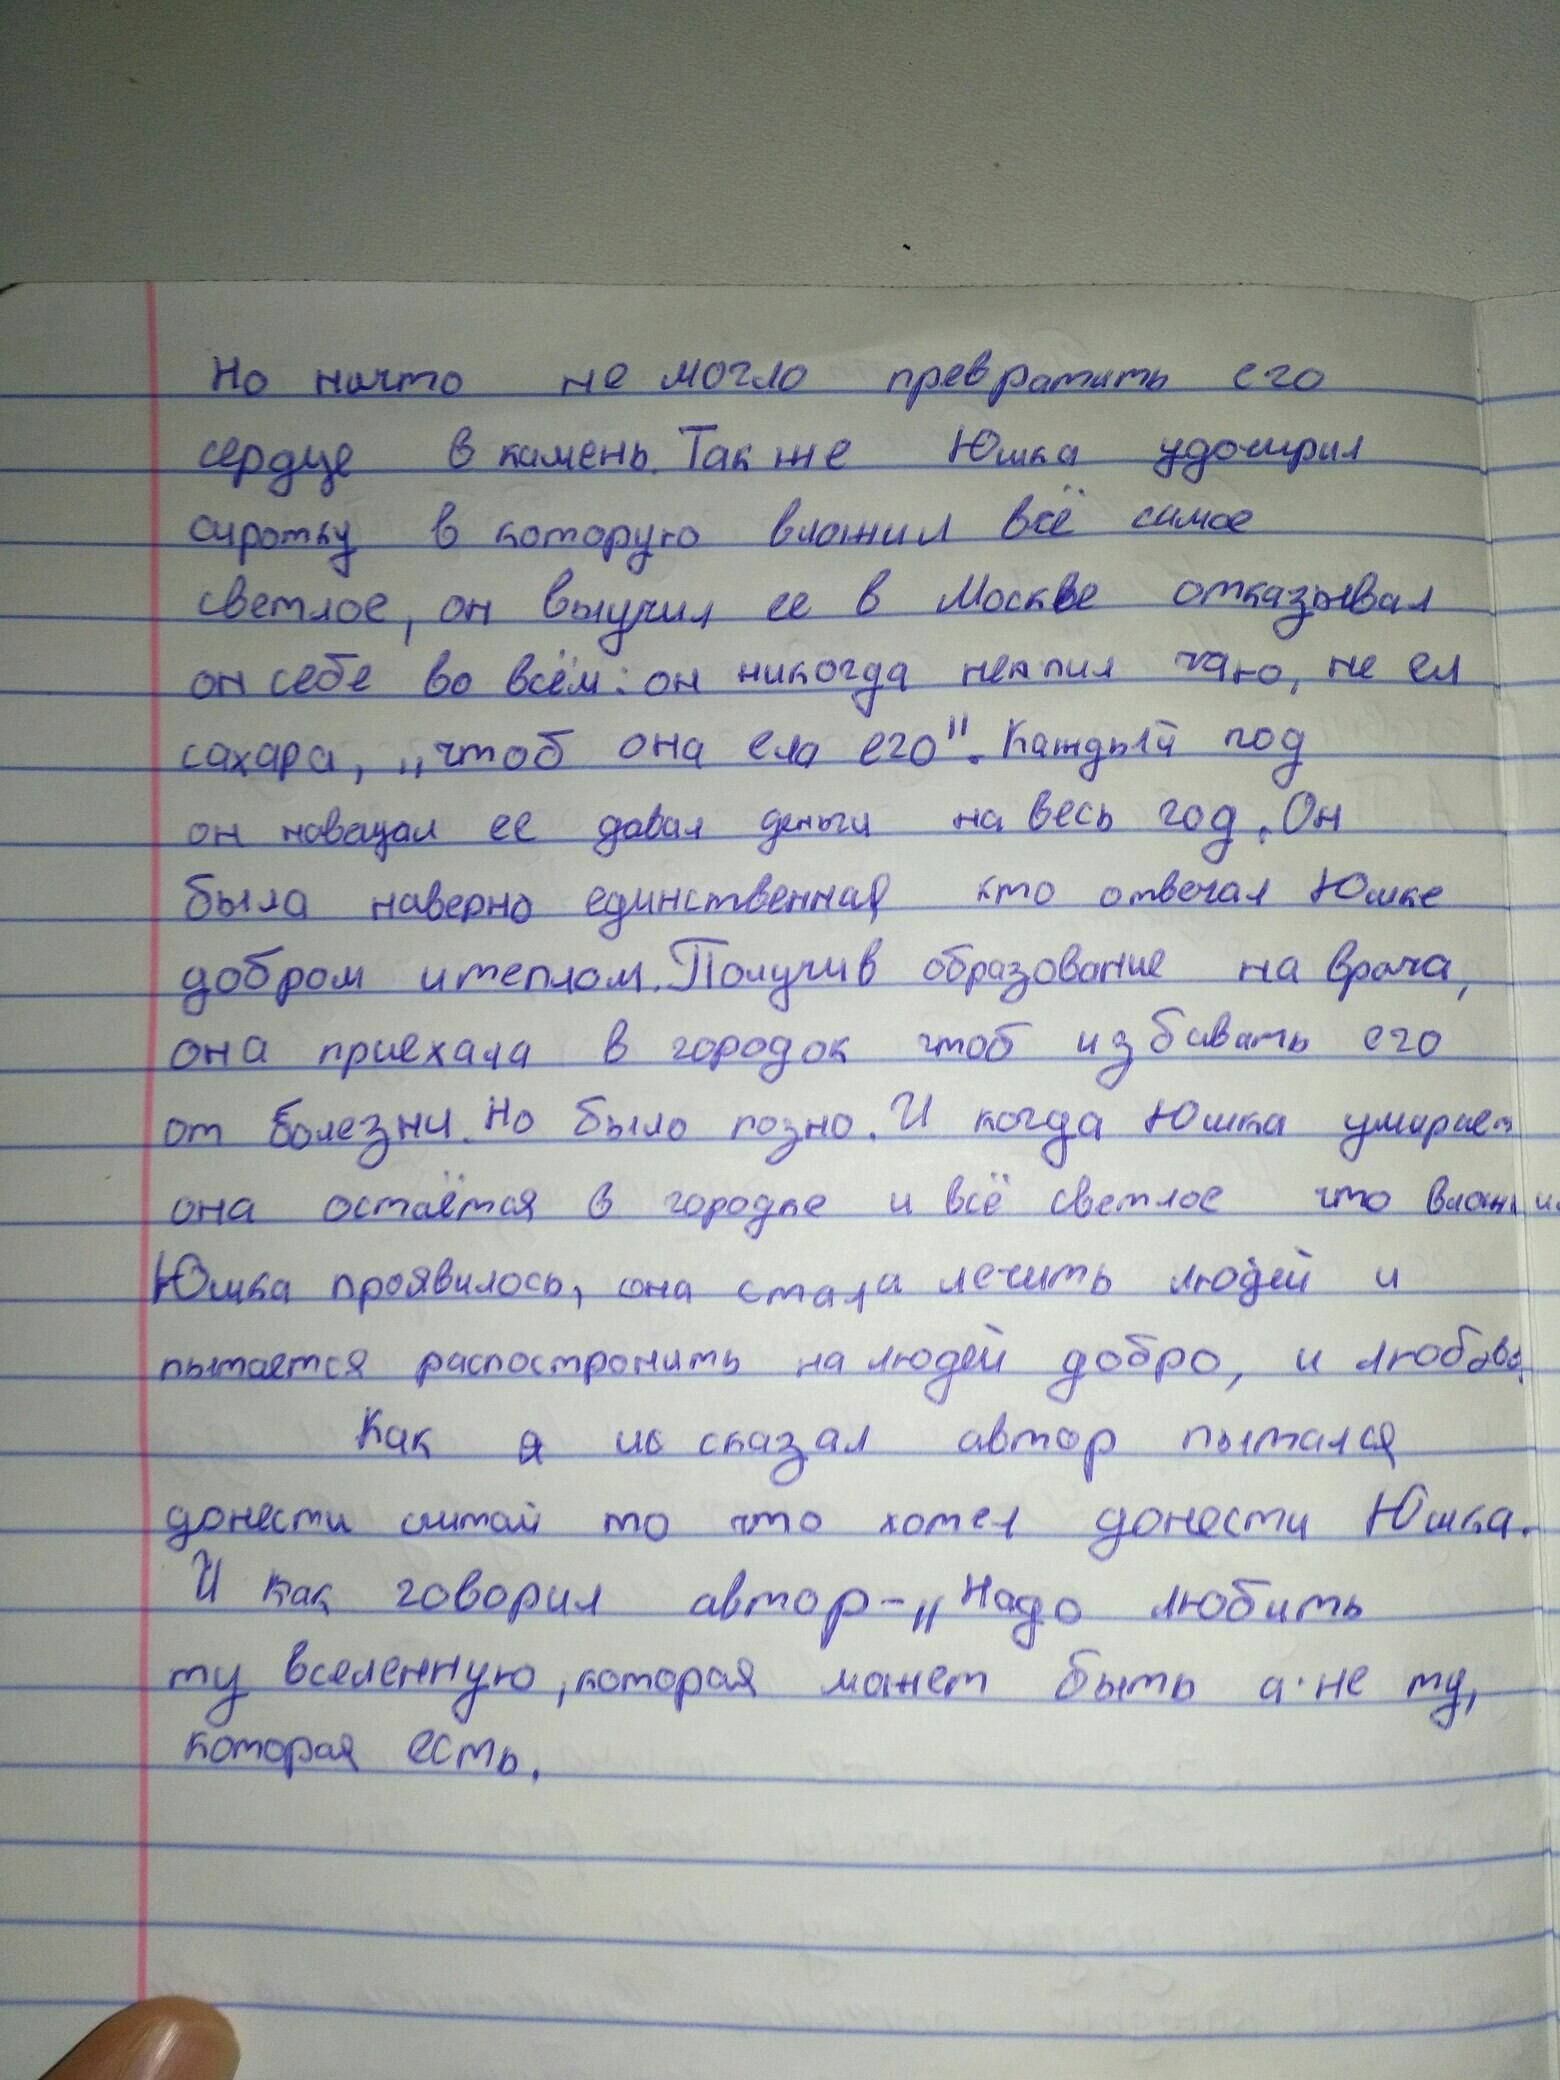 Но ничто не могло превратить его
сердце в камень. Также Юшка удочирил
сиротку в которую вложил всё самое
светлое, он выучил ее в Москве отказывал
он себе во всём: он никогда не пил чаю, не ел
сахара, „чтоб она ела его". Каждый год
он навещал ее давал деньги на весь год. Он
была наверно единственная кто отвечал Юшке
добром и теплом. Получив образование на врача,
она приехала в городок чтоб избавить его
от болезни. Но было позно. И когда Юшка умирает
она остаётся в городке и всё светлое что вложил
Юшка проявилось, она стала лечить людей и
пытается распостронить на людей добро, и любовь.
Как я сказал автор пытался
донести считай то что хотел донести Юшка.
И как говорил автор-„Надо любить
ту вселенную, которая может быть а не ту,
которая есть.